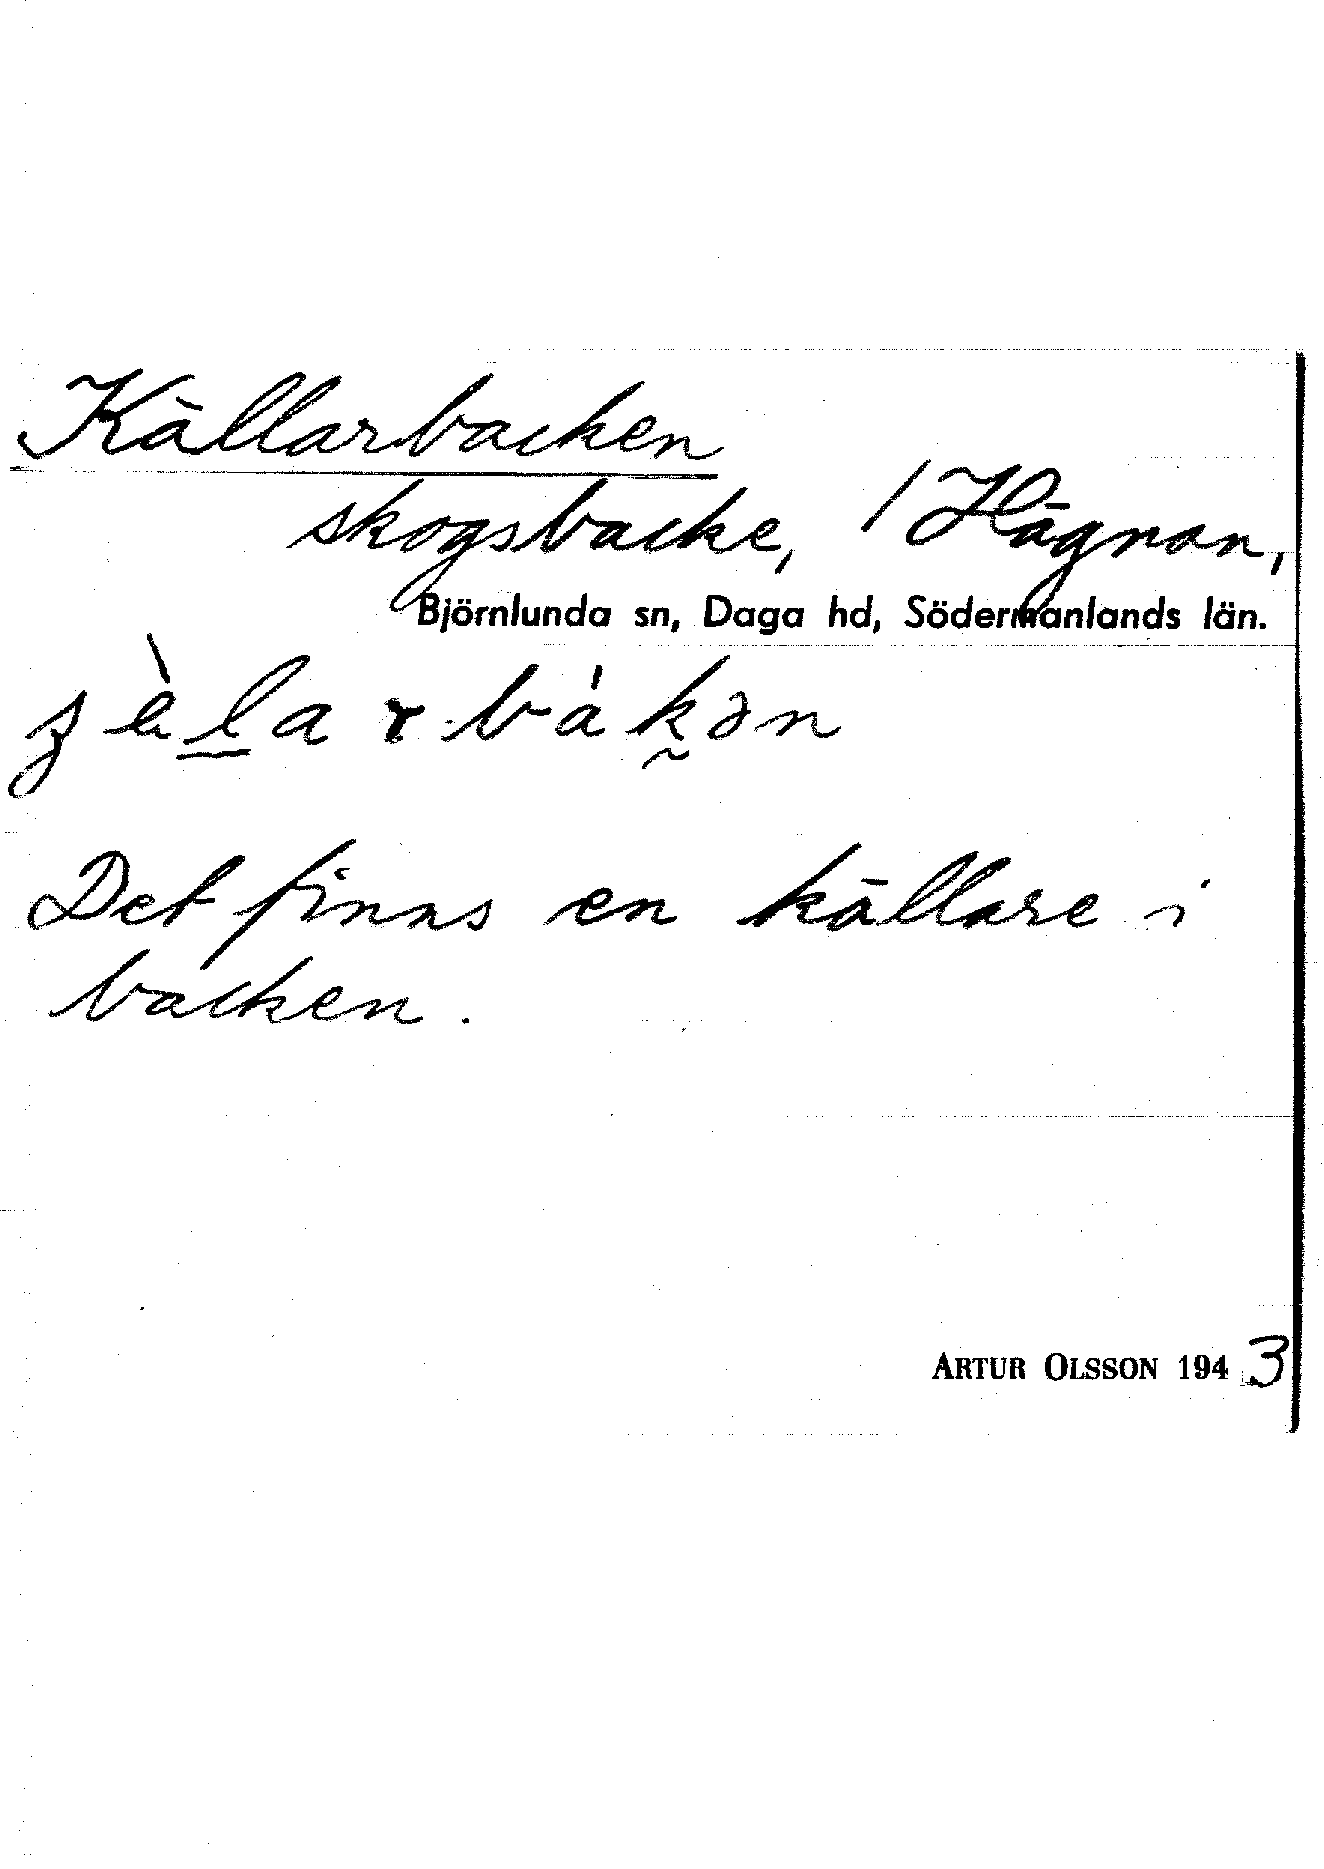 Källarbacken
skogsbacke, / Hägnan,
Björnlunda sn, Daga hd, Södermanlands län.
Det finns en källare i
backen.
ARTUR OLSSON 1943